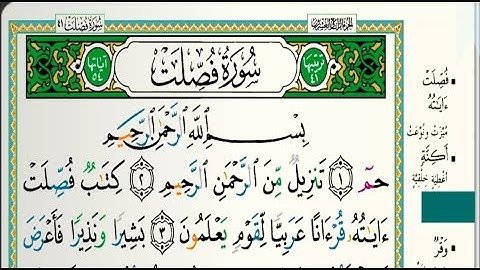 سُورَةُ فُصِّلَتْ ٤١
الجزء الرابع والعشرون
ترتيبها ٤١
سُورَةُ فُصِّلَتْ
آياتها ٥٤
بِسْمِ ٱللَّهِ ٱلرَّحْمَٰنِ ٱلرَّحِيمِ
حمٓ ۝١ تَنزِيلٌ مِّنَ ٱلرَّحْمَٰنِ ٱلرَّحِيمِ ۝٢ كِتَٰبٌ فُصِّلَتْ
ءَايَٰتُهُۥ قُرْءَانًا عَرَبِيًّا لِّقَوْمٍ يَعْلَمُونَ ۝٣ بَشِيرًا وَنَذِيرًا فَأَعْرَضَ
فُصِّلَتْ
ءَايَٰتُهُۥ
مُيِّزَتْ وَنُوِّعَتْ
أَكِنَّةٍ
أَغْطِيَةٍ خِلْقِيَّةٍ
وَقْرٌ